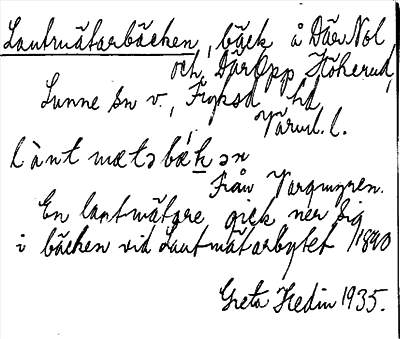 Lantmätarbäcken, bäck å Där Nol
och Där Opp Hökerud,
Sunne sn v., Fryksd. hd,
Värml. l.
lànt mætə bǽkən
Från Vargmyren.
En lantmätare gick ner sig
i bäcken vid Lantmätarbytet 1890
Greta Hedin 1935.